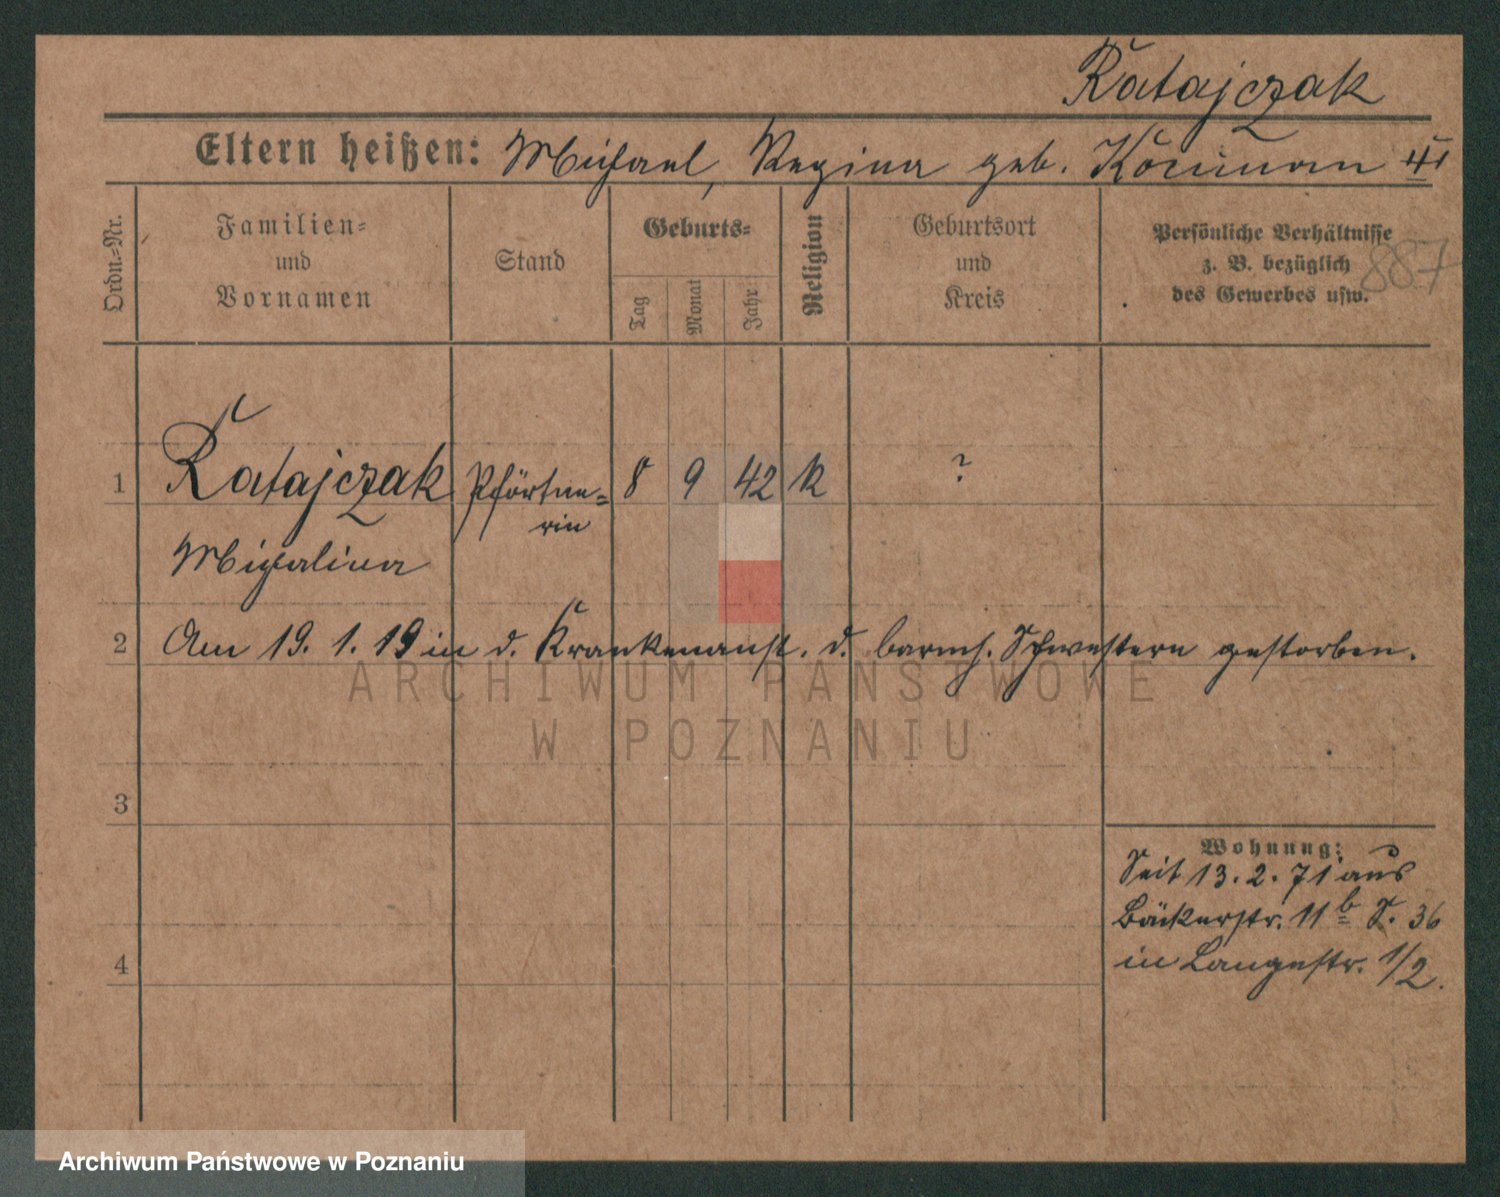 Ratajczak
Eltern heißen: Michael, Regina geb.
Ordn.=Nr.
Familien=
und
Vornamen
Stand
Geburts=
Tag
Monat
Jahr
Religion
Geburtsort
und
Kreis
Persönliche Verhältnisse
z. B. bezüglich
des Gewerbes usw.
887
1 Ratajczak Pförtne= 8 9 42 k ?
rin
Michalina
2 Am 19. 1. 19 in d. Krankenanst. d. barmh. Schwestern gestorben.
ARCHIWUM PAŃSTWOWE
W POZNANIU
3
Wohnung:
Seit 13. 2. 71 aus
Bäckerstr. 11 b S. 36
4
in Langestr. 1/2.
Archiwum Państwowe w Poznaniu